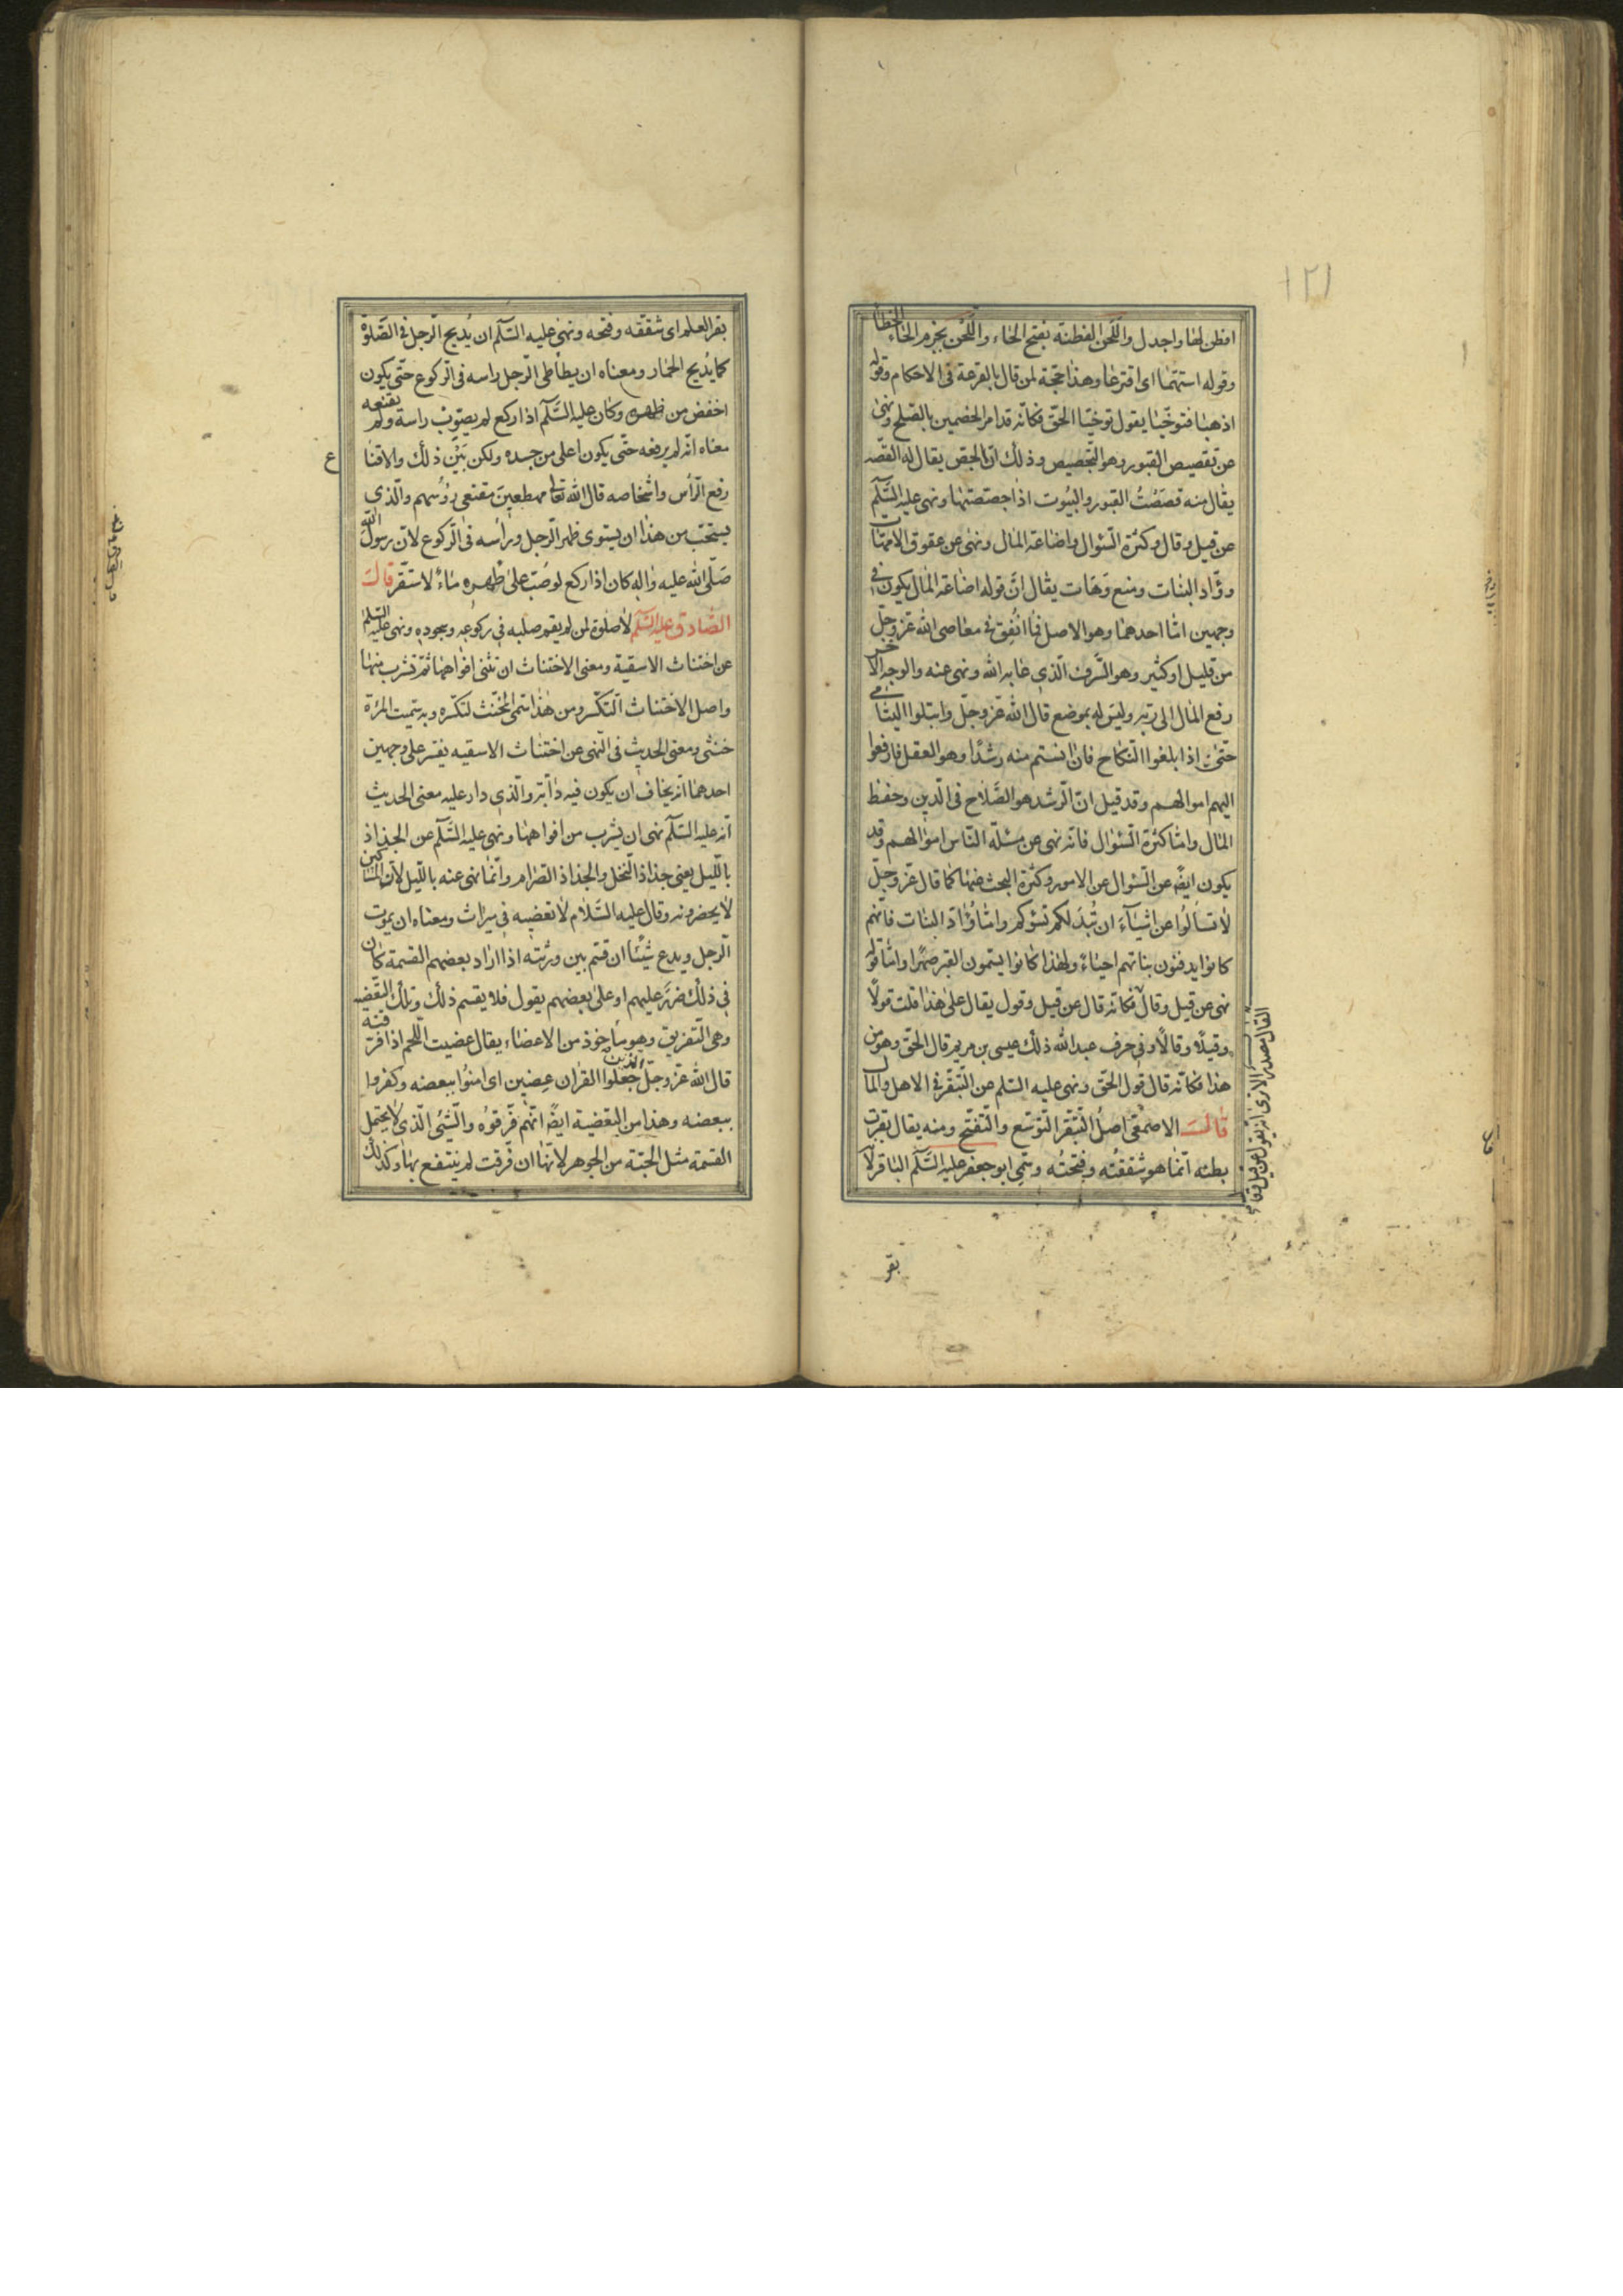 ١٢١
افطن لها واجدل واللَّحَن الفطنة بفتح الحاء واللَّحْن بجزم الحاء الخطا
وقوله استهما اى اقترعا وهذا حجّة لمن قال بالقرعة فى الاحكام وقوله
اذهبا فتوخّيا يقول توخّيا الحقّ فكانّه قد امر الخصمين بالصّلح ونهىٰ
عن تقصيص القبور وهو التّجصيص وذلك انّ الجصّ يقال له القصّه
يقال منه قصَصْتُ القبور والبيوت اذا جصّصتها ونهى عليه السَّلٰم
عن قيل وقال وكثرة السّؤال واضاعة المال ونهى عن عقوق الامّهات
ووَّاد البنات ومنع وَهات يقال انَّ قوله اضاعة المال يكون فى
وجهين امّا احدهما وهو الاصل فما اُنْفِق فى معاصى الله عزّ وجلّ
من قليل او كثير وهو السّرف الّذى عابه الله ونهى عنه والوجه الآخر
رفع المال الى ربّه وليس له بموضع قال الله عزّ وجلّ وابتلوا اليتامى
حتّىٰ اذا بلغوا النّكاح فان انستم منه رشدًا وهو العقل فارفعوا
اليهم اموالهم وقد قيل انّ الرّشد هو الصَّلاح فى الدّين وحفظ
المال وامّا كثرة السّئوال فانّه نهى عن مسئلة النّاس اموالهم وقد
يكون ايضًا عن السّئوال عن الامور وكثرة البحث عنها كما قال عزّ وجلّ
لا تسألُوا عن اشياءَ ان تُبْدَ لكم تسؤكم وامّا وُؤاد البنات فانهم
كانوا يدفنون بناتهم احياءً ولهذا كانوا يسمون القبر صهرًا وامّا قوله
نهى عن قيل وقال فكانّه قال عن قيل وقول يقال علىٰ هذا قلت قولًا
وقيلًا وقالًا وفى حرف عبد الله ذلك عيسى بن مريم قال الحقّ وهو من
هذا فكانّه قال قول الحقّ ونهى عليه السّلم عن التّبقّر فى الاهل والمال
قالَ الاصمعّى اصلُ التّبقّر التّوسّع والتّفتّح ومنه يقال بقرت
بطنه انّما هو شققتُه وفتحتُه وسمّى ابو جعفر عليه السَّلٰم الباقر لانّه
بقر
بقر العلم اى شقّقه وفتحه ونهى عليه السّلٰم ان يُدبج الرّجل فى الصَّلوة
كما يُدبج الحمار ومعناه ان يطأطى الرّجل راسه فى الرّكوع حتّى يكون
اخفض من ظهره وكان عليه السَّلٰم اذا ركع لم يصوّب راسه ولم يقنعه
معناه انّه لم يرفعه حتّى يكون اعلى من جسده ولكن بَيْنَ ذلك والاقنا ع
رفع الرّأس واشخاصه قال الله تعالى مهطعين مقنعى رؤسهم والّذى
يستحّب من هذا ان يستوى ظهر الرّجل وراسه فى الرّكوع لانّ رسول الله
صَلّى الله عليه واله كان اذا ركع لو صُبّ علىٰ ظهره ماءً لاستقّر قالَ
الصّادق عليه السَّلٰم لا صلوة لمن لم يقم صلبه فى ركوعه وسجوده ونهى عليه السّلم
عن اختناث الاسقية ومعنى الاختناث ان تثنى افواهها ثمّ تشرب منها
واصل الاختناث التّكسّر ومن هذا سّمى المخنّث لتكسّره وبه سمّيت المرٔة
خنثى ومعنى الحديث فى النّهى عن اختناث الاسقيه يفسّر على وجهين
احدهما انّه يخاف ان يكون فيه دابّة والّذى دار عليه معنى الحديث
انّه عليه السّلٰم نهى ان يشرب من افواهها ونهى عليه السَّلٰم عن الجذاذ
باللّيل يعنى جذاذ النّخل والجذاذ الصّرام وانّما نهى عنه باللّيل لانّ المساكين
لا يحضرونه وقال عليه السَّلام لا تعضيه فى ميراث ومعناه ان يموت
الرّجل ويدع شيئًا ان قسّم بين ورثته اذا اراد بعضهم القسمة كان
فى ذلك ضررٌ عليهم او على بعضهم يقول فلا يقسم ذلك وتلك التّعضيه
وهى التّفريق وهو ماخوذ من الاعضاء يقال عضيت اللّحم اذا فرّقته
قال الله عزّ وجلّ الّذين جعلوا القران عضين اى امنُوا ببعضه وكفروا
ببعضه وهذا من التعضية ايضًا انّهم فرّقوُه والشّئى الّذى لا يحتمل
القسمة مثل الحبّة من الجوهر لانّها ان فرّقت لم ينتفع بها وكذلك